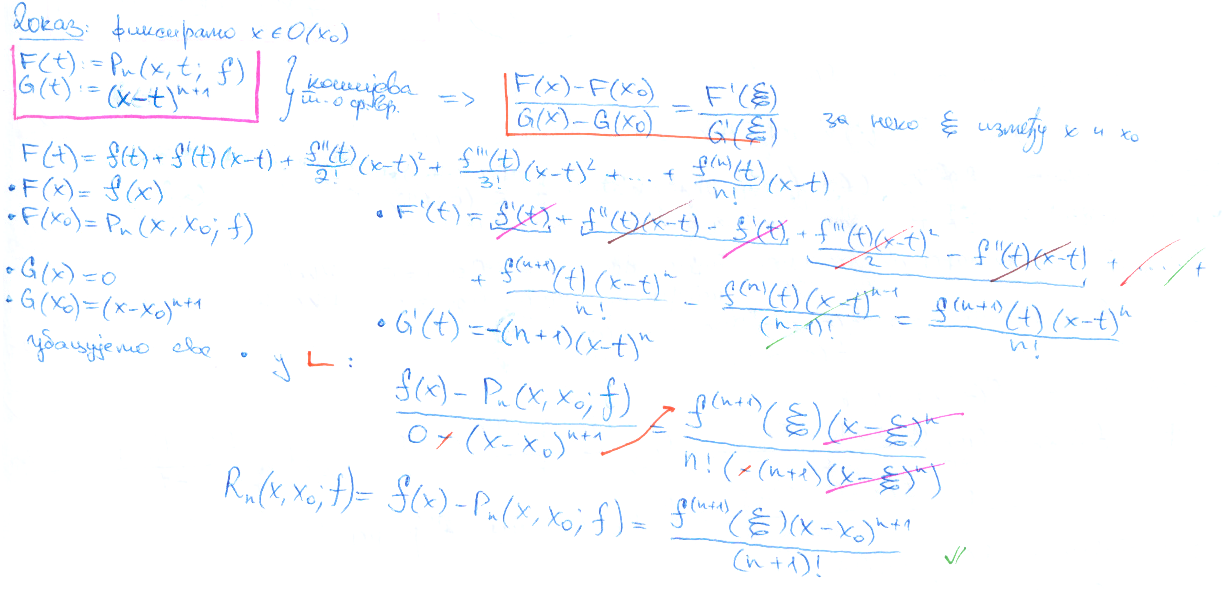 Доказ: фиксирамо x ∈ O(x₀)
F(t) := Pₙ(x, t; f)
G(t) := (x-t)ⁿ⁺¹
} кошијева т.о ср.вр. => (F(x) - F(x₀))/(G(x) - G(x₀)) = F'(ξ)/G'(ξ) за неко ξ између x и x₀
F(t) = f(t) + f'(t)(x-t) + f''(t)/2! (x-t)² + f'''(t)/3! (x-t)² + ... + f⁽ⁿ⁾(t)/n! (x-t)
• F(x) = f(x)
• F(x₀) = Pₙ(x, x₀; f)
• F'(t) = f'(t) + f''(t)(x-t) - f'(t) + f'''(t)(x-t)²/2 - f''(t)(x-t) + ... +
+ f⁽ⁿ⁺¹⁾(t)(x-t)ⁿ/n! - f⁽ⁿ⁾(t)(x-t)ⁿ⁻¹/(n-1)! = f⁽ⁿ⁺¹⁾(t)(x-t)ⁿ/n!
• G(x) = 0
• G(x₀) = (x-x₀)ⁿ⁺¹
• G'(t) = -(n+1)(x-t)ⁿ
убацујемо све • у L :
(f(x) - Pₙ(x, x₀; f))/(0 - (x-x₀)ⁿ⁺¹) = f⁽ⁿ⁺¹⁾(ξ)(x-ξ)ⁿ/(n! (-(n+1)(x-ξ)ⁿ))
Rₙ(x, x₀; f) = f(x) - Pₙ(x, x₀; f) = f⁽ⁿ⁺¹⁾(ξ)(x-x₀)ⁿ⁺¹/(n+1)!